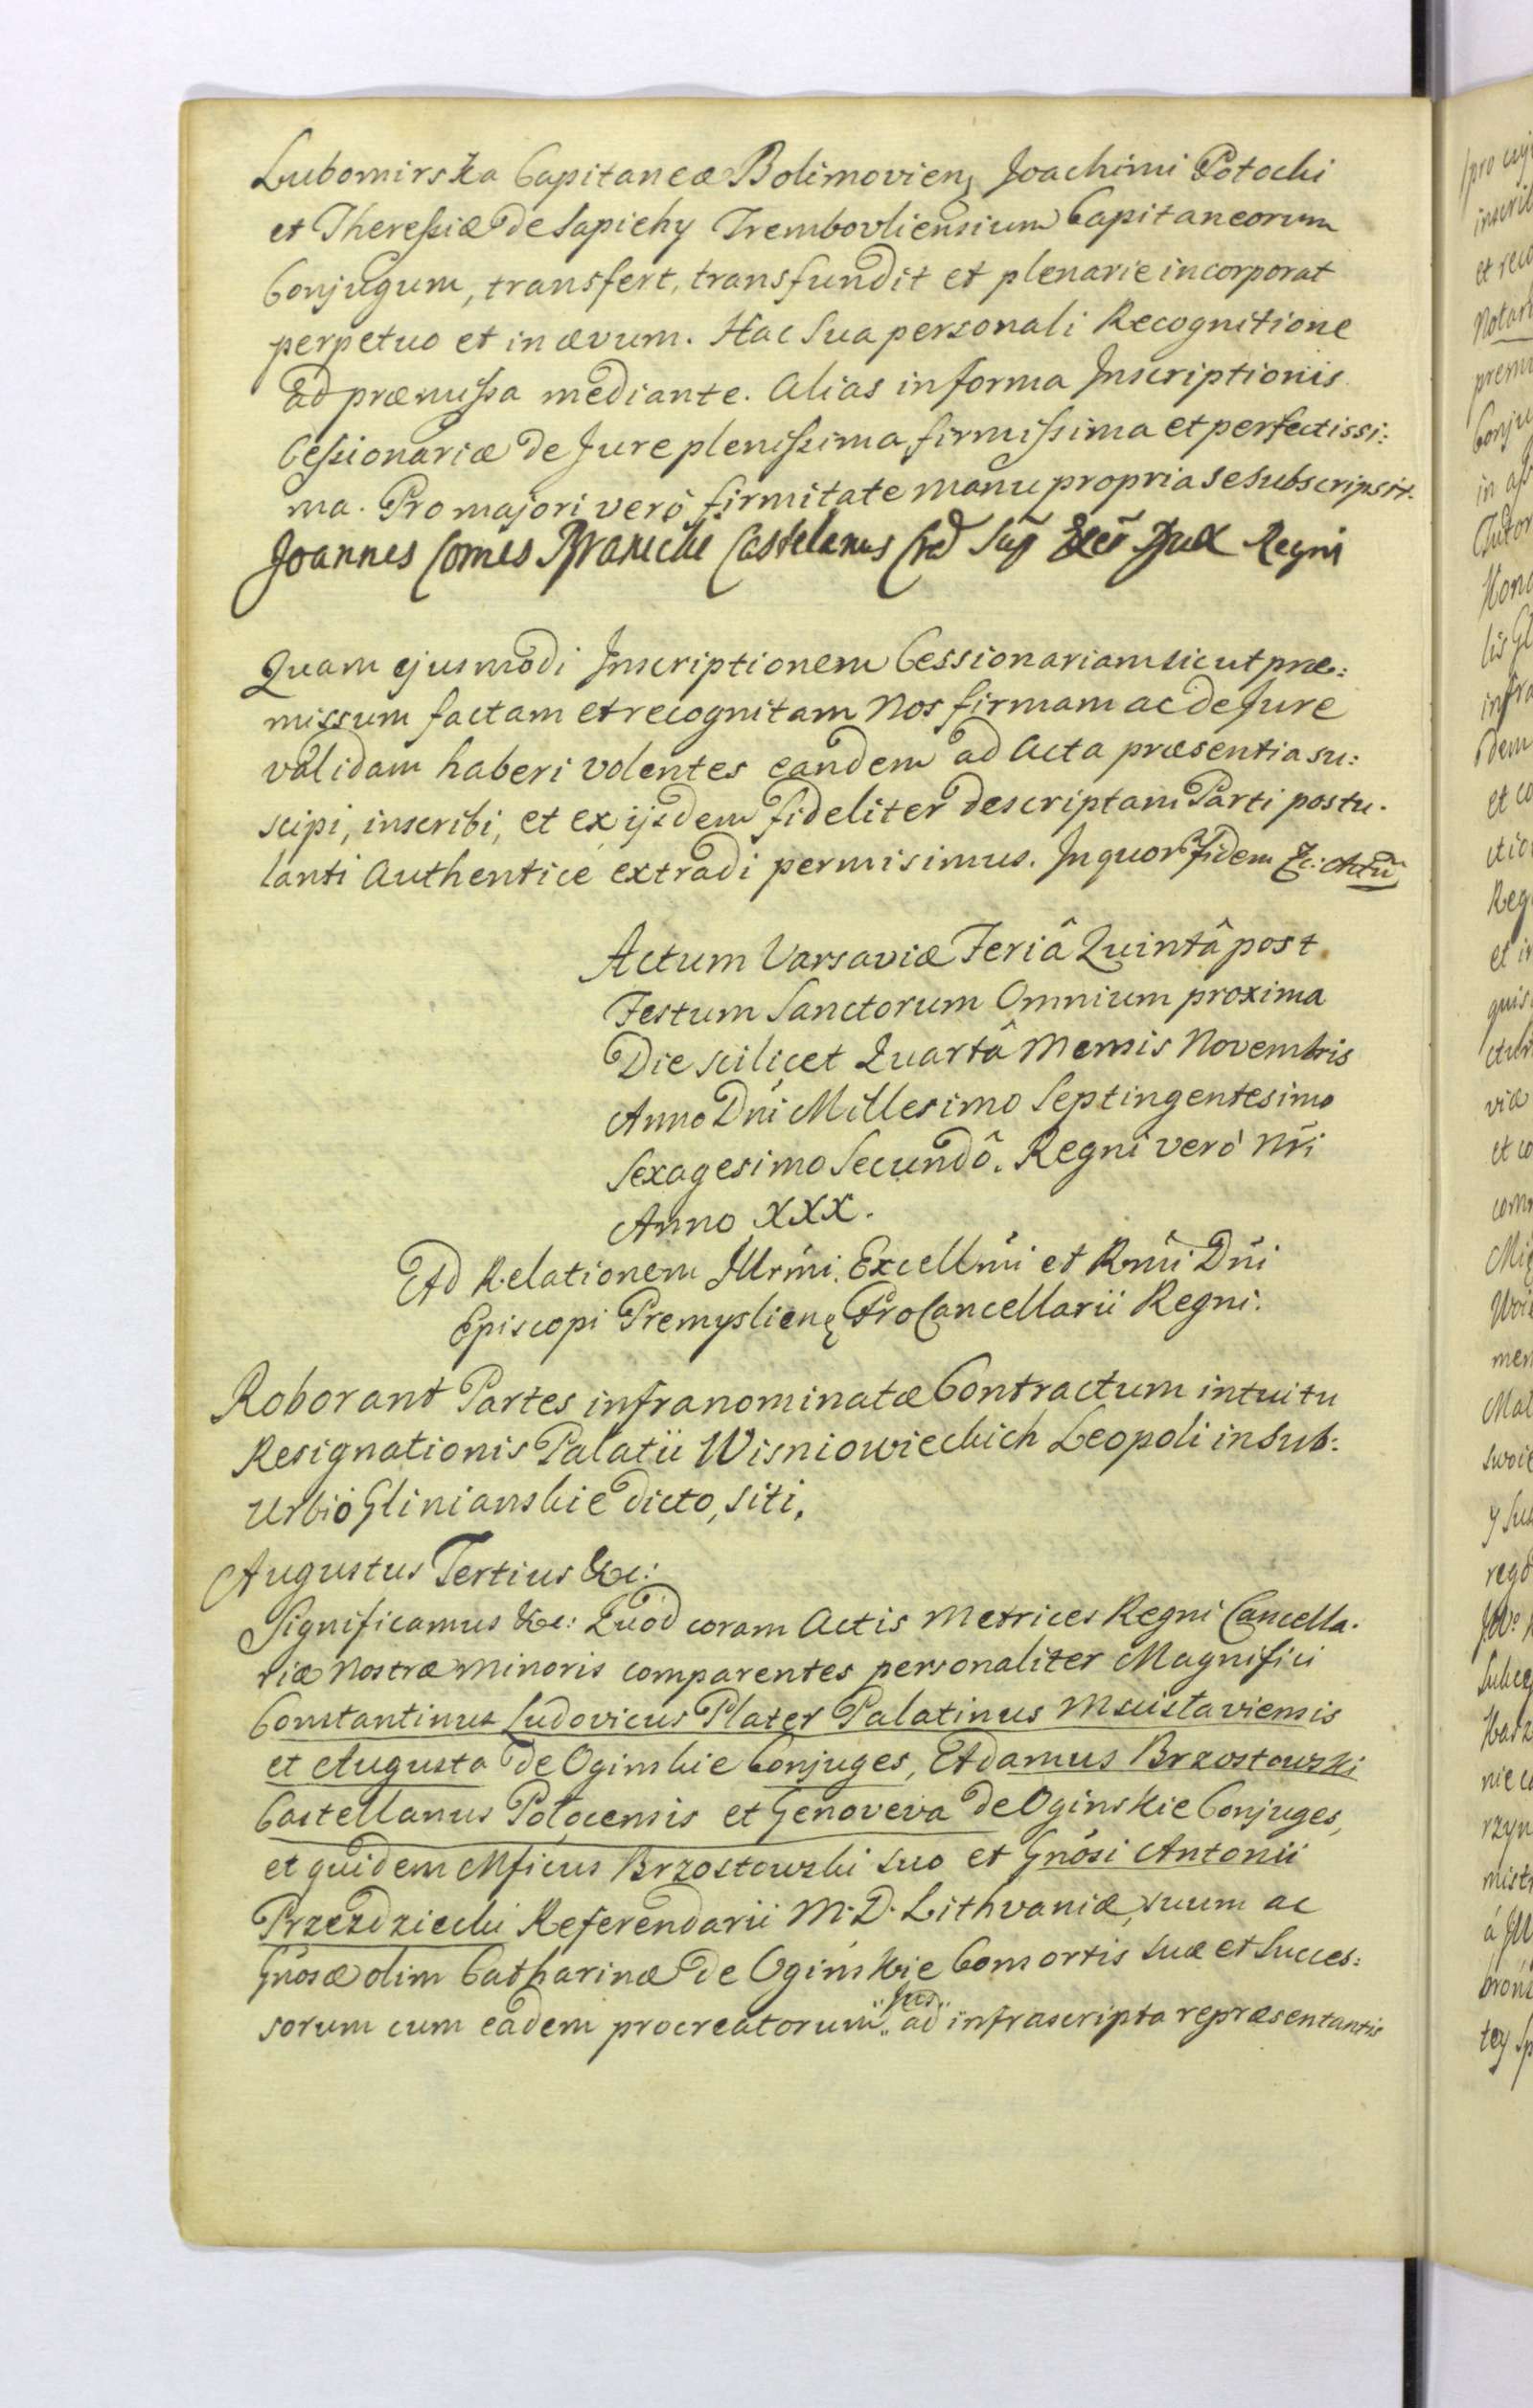 Lubomirska Capitaneæ Bolimovien, Joachimi Potocki
et Theressiæ de Sapiehy Trembovliensium Capitaneorum
Conjugum, transfert, transfundit et plenarie incorporat
perpetuo et in ævum. Hac Sua personali Recognitione
ad præmissa mediante. Alias in forma Inscriptionis
Cessionariæ de Jure plenissima, firmissima et perfectissi:
ma. Pro majori verò firmitate manu propria se subscripsit.
Joannes Comes Branicki Castelanus Regni
Quam ejusmodi Inscriptionem Cessionariam sicut præ:
missum factam et recognitam Nos firmam ac de Jure
validam haberi volentes eandem ad Acta præsentia su:
scipi, inscribi, et ex ijsdem fideliter descriptam Parti postu.
lanti Authentice extradi permisimus. In quor fidem &c: Actū
Actum Varsaviæ Feriâ Quintâ post
Festum Sanctorum Omnium proxima
Die scilicet Quartâ Mensis Novembris
Anno Dni Millesimo Septingentesimo
Sexagesimo Secundô. Regni verò Nri
Anno XXX.
Ad Relationem Illrmi. Excellmi et Rmi Dni
Episcopi Premyslien ProCancellarii Regni.
Roborant Partes infranominatæ Contractum intuitu
Resignationis Palatii Wisniowieckich Leopoli in Sub:
Urbio Glinianskie dicto, siti.
Augustus Tertius &c:
Significamus &c: Quod coram Actis Metrices Regni Cancella.
riæ Nostræ Minoris comparentes personaliter Magnifici
Constantinus Ludovicus Plater Palatinus Mscislaviensis
et Augusta de Oginskie Conjuges, Adamus Brzostowski
Castellanus Polocensis et Genoveva de Oginskie Conjuges,
et quidem Mficus Brzostowski suo et Gnosi Antonii
Przezdziecki Referendarii M. D. Lithvaniæ, suum ac
Gnosæ olim Catharinæ de Oginskie Consortis suæ et Succes:
sorum cum eadem procreatorum „Jus„ ad infrascripta repræsentantis